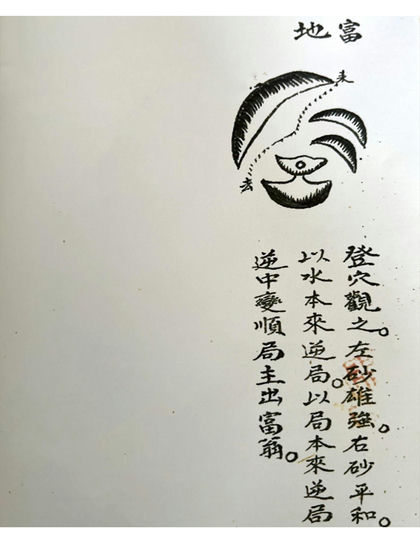 富地
来
去
登穴觀之。左砂雄強。右砂平和。
以水本來逆局。以局本來逆局
逆中變順局主出富翁。